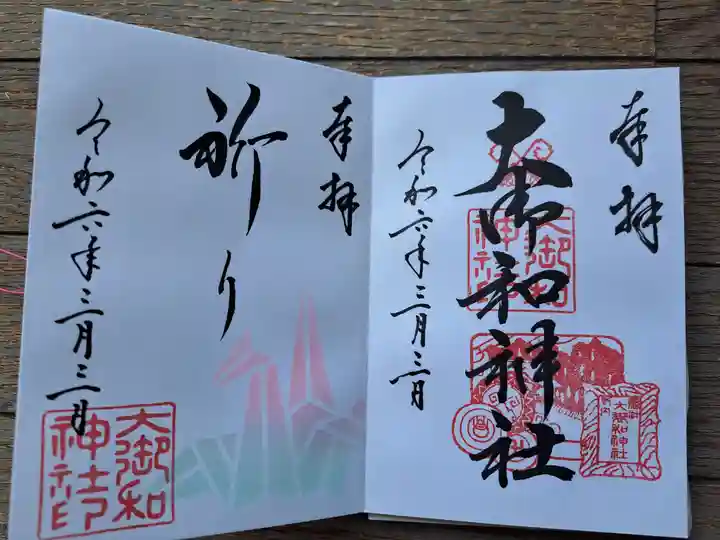 奉拝
大御和神社
令和六年三月三日
大御和
神社印
奉拝
祈り
令和六年三月三日
大御和
神社印